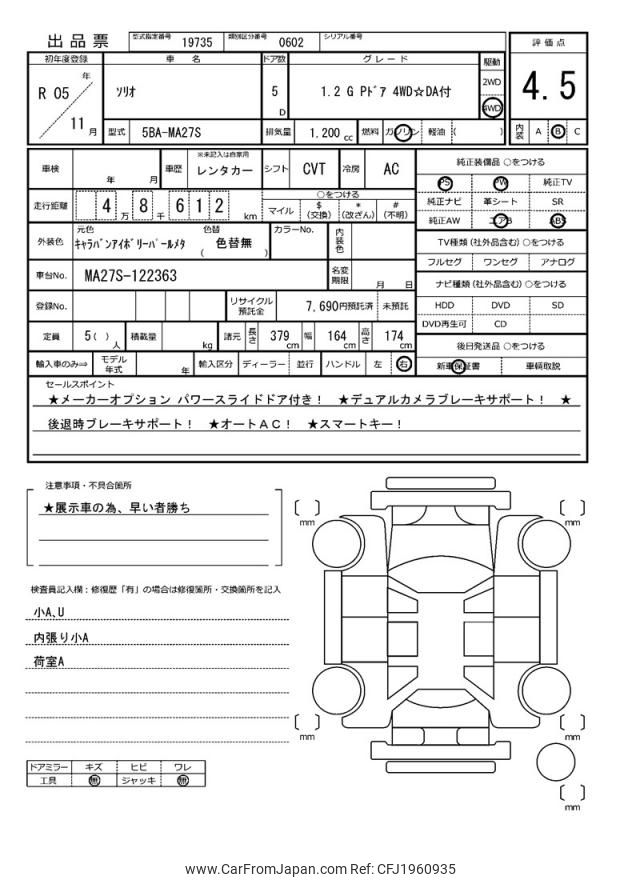 出品票
型式指定番号 19735 類別区分番号 0602 シリアル番号
評価点
4.5
初年度登録 車名 ドア数 グレード 駆動
R 05 年 11 月
ソリオ
5 D
1.2 G Pドア 4WD☆DA付
2WD
4WD
型式 5BA-MA27S 排気量 1,200 cc 燃料 ガソリン 軽油 ( )
内装 A B C
車検 年 月 車歴 ※未記入は自家用 レンタカー シフト CVT 冷房 AC
走行距離 4 万 8 千 6 1 2 km
○をつける
マイル $(交換) *(改ざん) #(不明)
外装色 元色 キャラバンアイボリーパールメタ 色替 ( 色替無 ) カラーNo. 内装色
車台No. MA27S-122363 名変期限 月 日
登録No. リサイクル預託金 7,690円預託済 未預託
定員 5( )人 積載量 kg 諸元 長さ 379 cm 幅 164 cm 高さ 174 cm
輸入車のみ⇒ モデル年式 年 輸入区分 ディーラー 並行 ハンドル 左 右
純正装備品 ○をつける
PS PW 純正TV
純正ナビ 革シート SR
純正AW エアB ABS
TV種類(社外品含む)○をつける
フルセグ ワンセグ アナログ
ナビ種類(社外品含む)○をつける
HDD DVD SD
DVD再生可 CD
後日発送品 ○をつける
新車保証書 車輌取説
セールスポイント
★メーカーオプション パワースライドドア付き! ★デュアルカメラブレーキサポート! ★
後退時ブレーキサポート! ★オートAC! ★スマートキー!
注意事項・不具合箇所
★展示車の為、早い者勝ち
検査員記入欄:修復歴「有」の場合は修復箇所・交換箇所を記入
小A、U
内張り小A
荷室A
ドアミラー キズ ヒビ ワレ
工具 無 ジャッキ 無
mm
mm
mm
mm
mm
www.CarFromJapan.com Ref: CFJ1960935